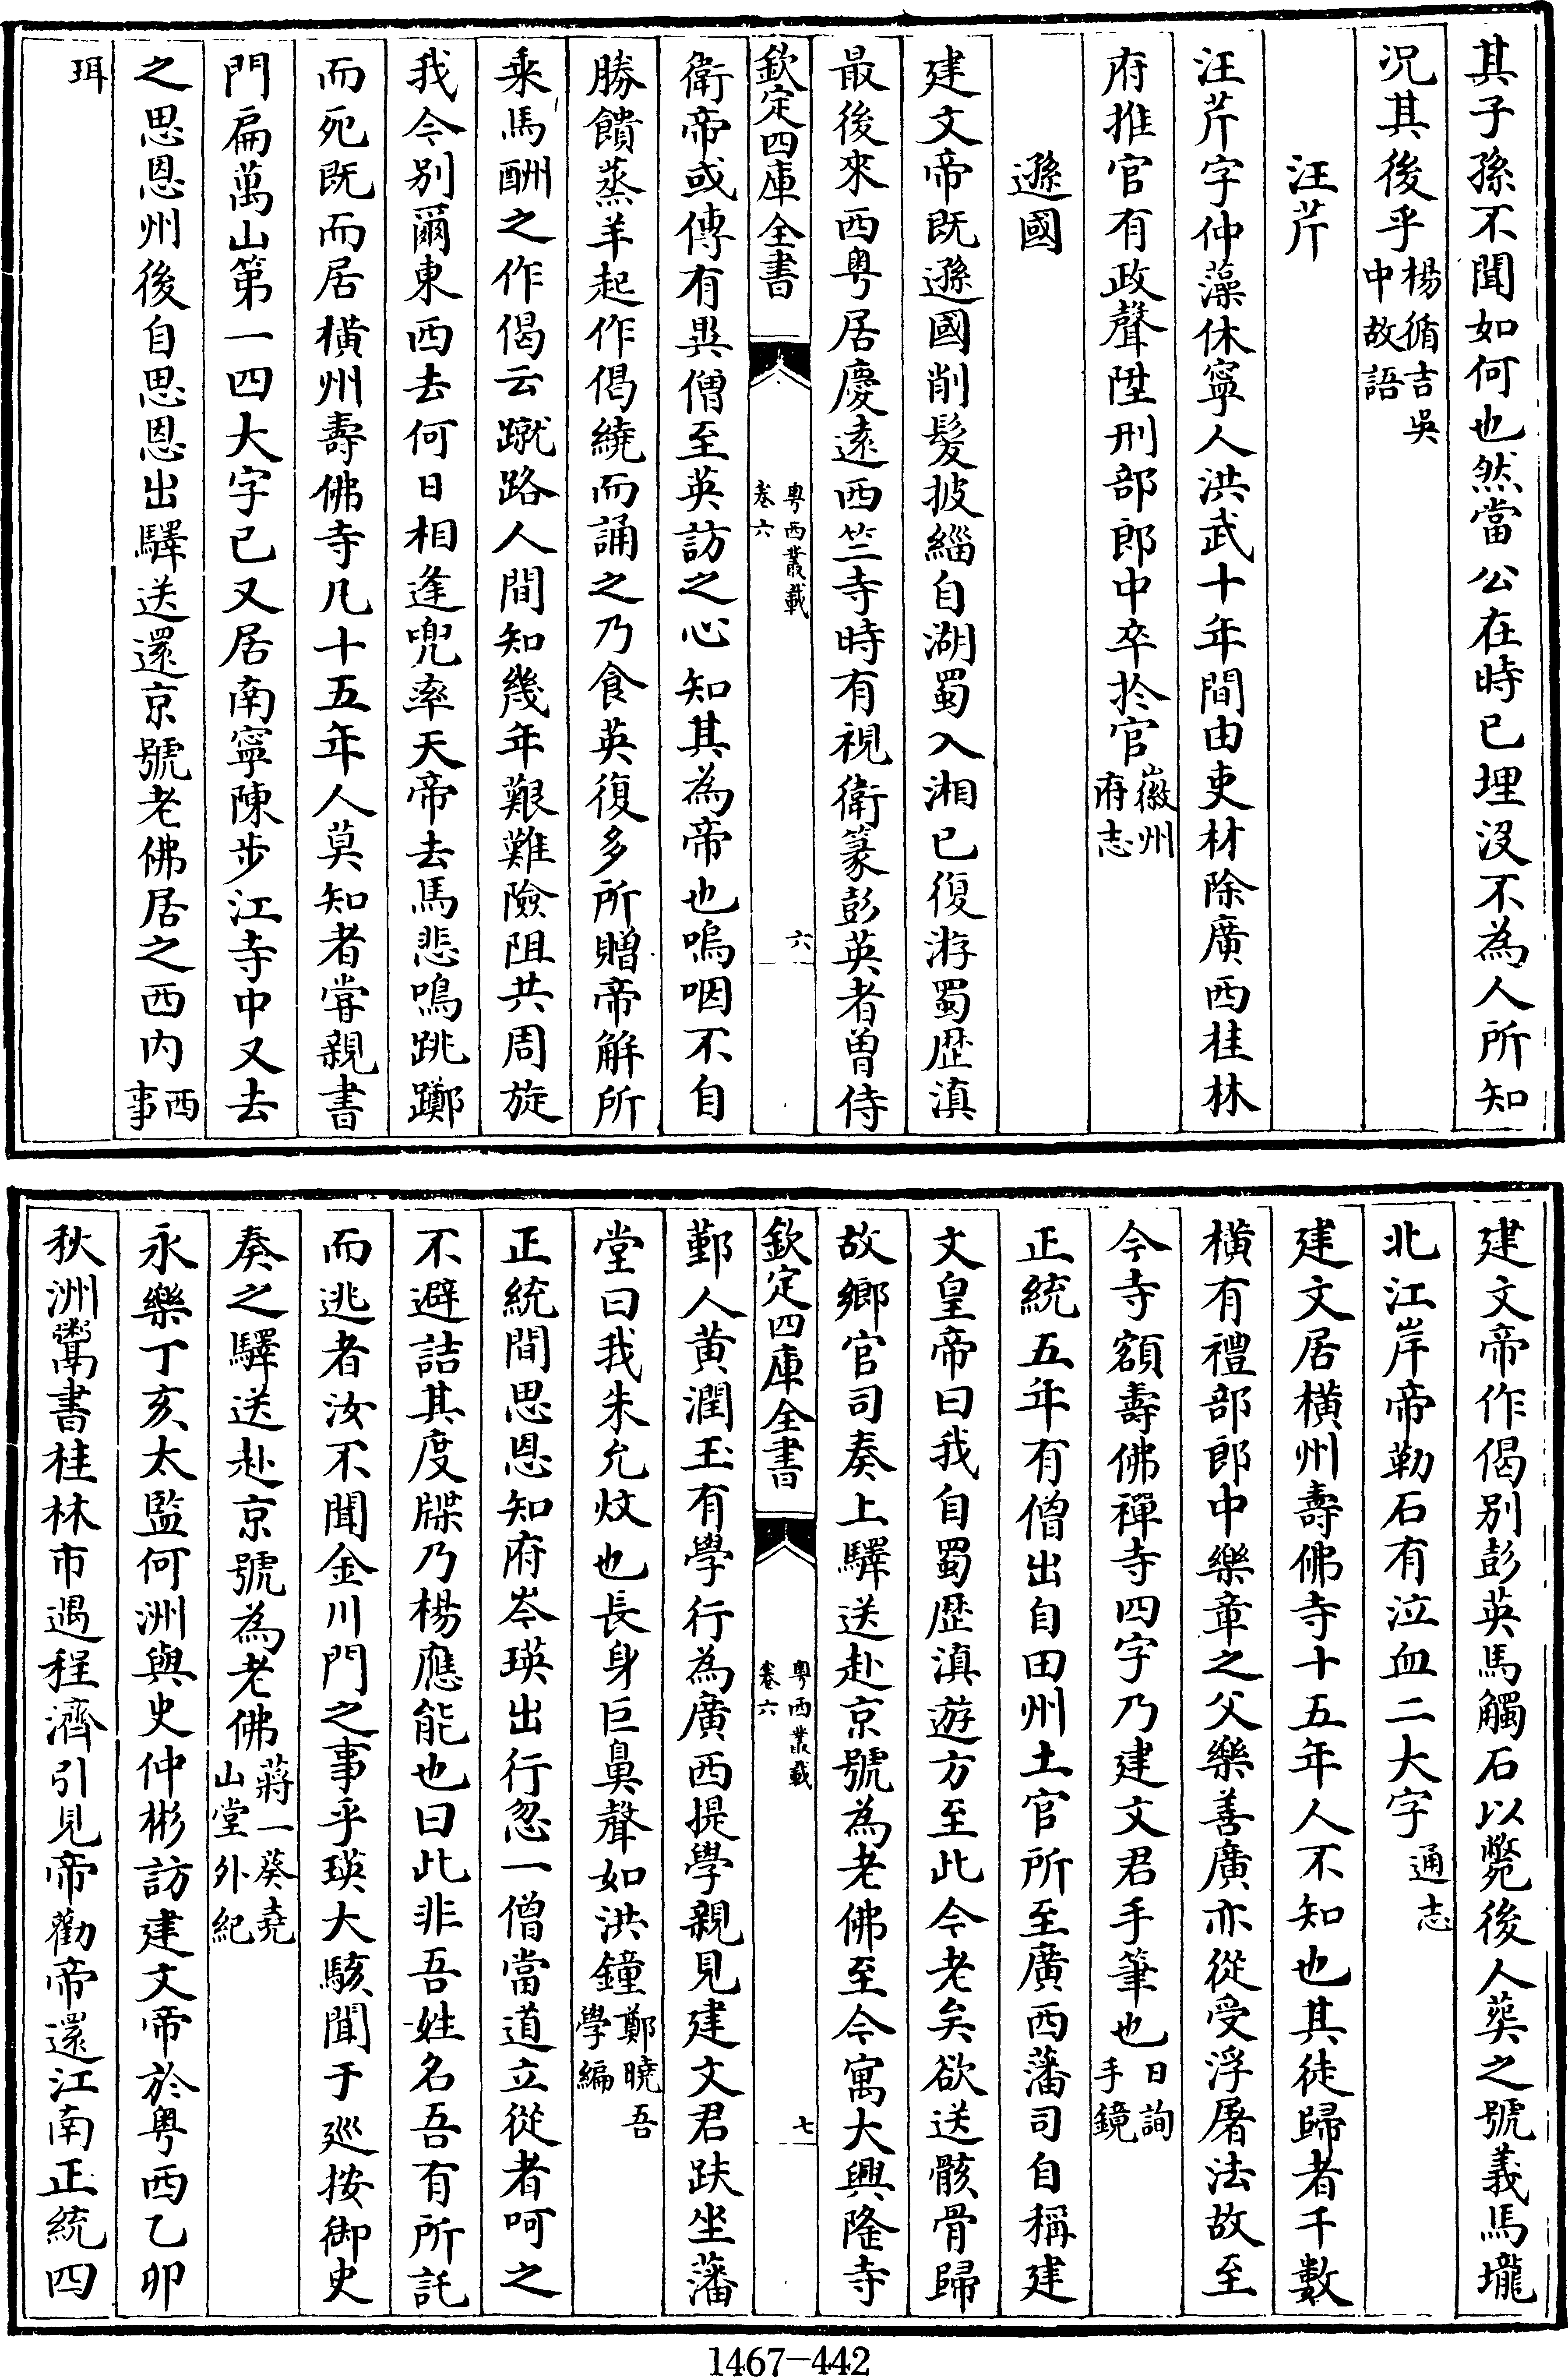 其子孫不聞如何也然當公在時已埋沒不為人所知
況其後乎楊循吉吳中故語
汪芹
汪芹字仲藻休寧人洪武十年間由吏材除廣西桂林
府推官有政聲陞刑部郎中卒於官徽州府志
遜國
建文帝既遜國削髮披緇自湖蜀入湘已復游蜀歴滇
最後來西粵居慶遠西竺寺時有視衛篆彭英者曽侍
欽定四庫全書
粵西叢載
卷六
六
衛帝或傳有異僧至英訪之心知其為帝也嗚咽不自
勝饋蒸羊起作偈繞而誦之乃食英復多所贈帝解所
乘馬酬之作偈云蹴路人間知幾年艱難險阻共周旋
我今别爾東西去何日相逢兜率天帝去馬悲鳴跳躑
而死既而居橫州壽佛寺凡十五年人莫知者嘗親書
門扁萬山第一四大字已又居南寧陳步江寺中又去
之思恩州後自思恩出驛送還京號老佛居之西内西事
珥
建文帝作偈别彭英馬觸石以斃後人葬之號義馬壠
北江岸帝勒石有泣血二大字通志
建文居橫州壽佛寺十五年人不知也其徒歸者千數
橫有禮部郎中樂章之父樂善廣亦從受浮屠法故至
今寺額壽佛禪寺四字乃建文君手筆也日詢手鏡
正統五年有僧出自田州土官所至廣西藩司自稱建
文皇帝曰我自蜀歴滇遊方至此今老矣欲送骸骨歸
故鄉官司奏上驛送赴京號為老佛至今寓大興隆寺
欽定四庫全書
粵西叢載
卷六
七
鄞人黄潤玉有學行為廣西提學親見建文君趺坐藩
堂曰我朱允炆也長身巨鼻聲如洪鐘鄭曉吾學編
正統間思恩知府岑瑛出行忽一僧當道立從者呵之
不避詰其度牒乃楊應能也曰此非吾姓名吾有所託
而逃者汝不聞金川門之事乎瑛大駭聞于廵按御史
奏之驛送赴京號為老佛蔣一葵堯山堂外紀
永樂丁亥太監何洲與史仲彬訪建文帝於粵西乙卯
秋洲鬻書桂林市遇程濟引見帝勸帝還江南正統四
1467-442